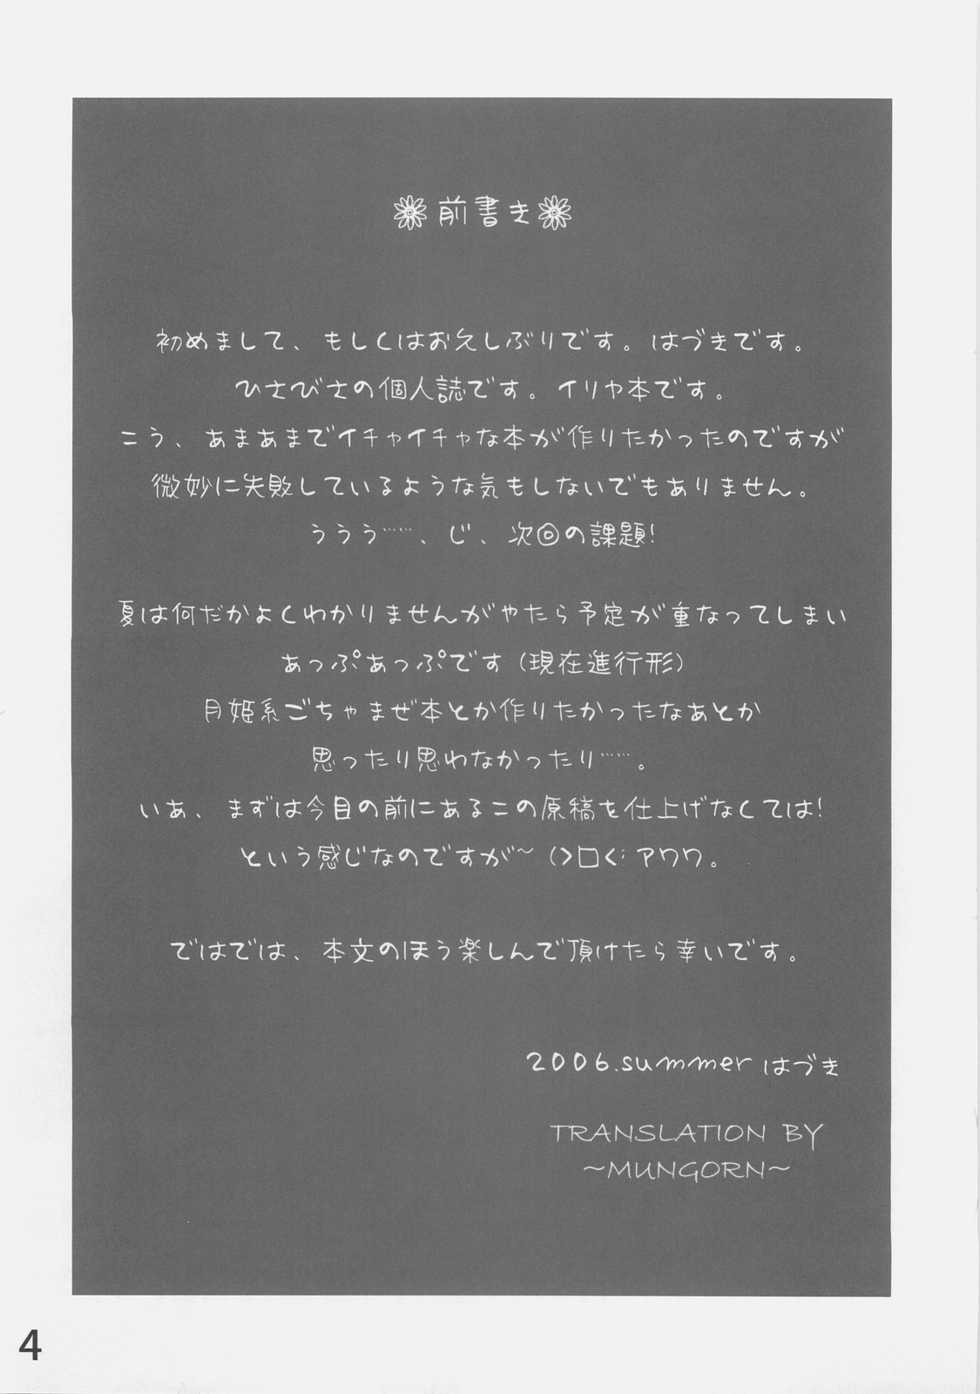 前書き
初めまして、もしくはお久しぶりです。はづきです。
ひさびさの個人誌です。イリヤ本です。
こう、あまあまでイチャイチャな本が作りたかったのですが
微妙に失敗しているような気もしないでもありません。
ううう……、じ、次回の課題!
夏は何だかよくわかりませんがやたら予定が重なってしまい
あっぷあっぷです(現在進行形)
月姫系ごちゃまぜ本とか作りたかったなあとか
思ったり思わなかったり……。
いあ、まずは今目の前にあるこの原稿を仕上げなくては!
という感じなのですが〜 (>口<;アワワ。
ではでは、本文のほう楽しんで頂けたら幸いです。
2006.summer はづき
TRANSLATION BY
~MUNGORN~
4